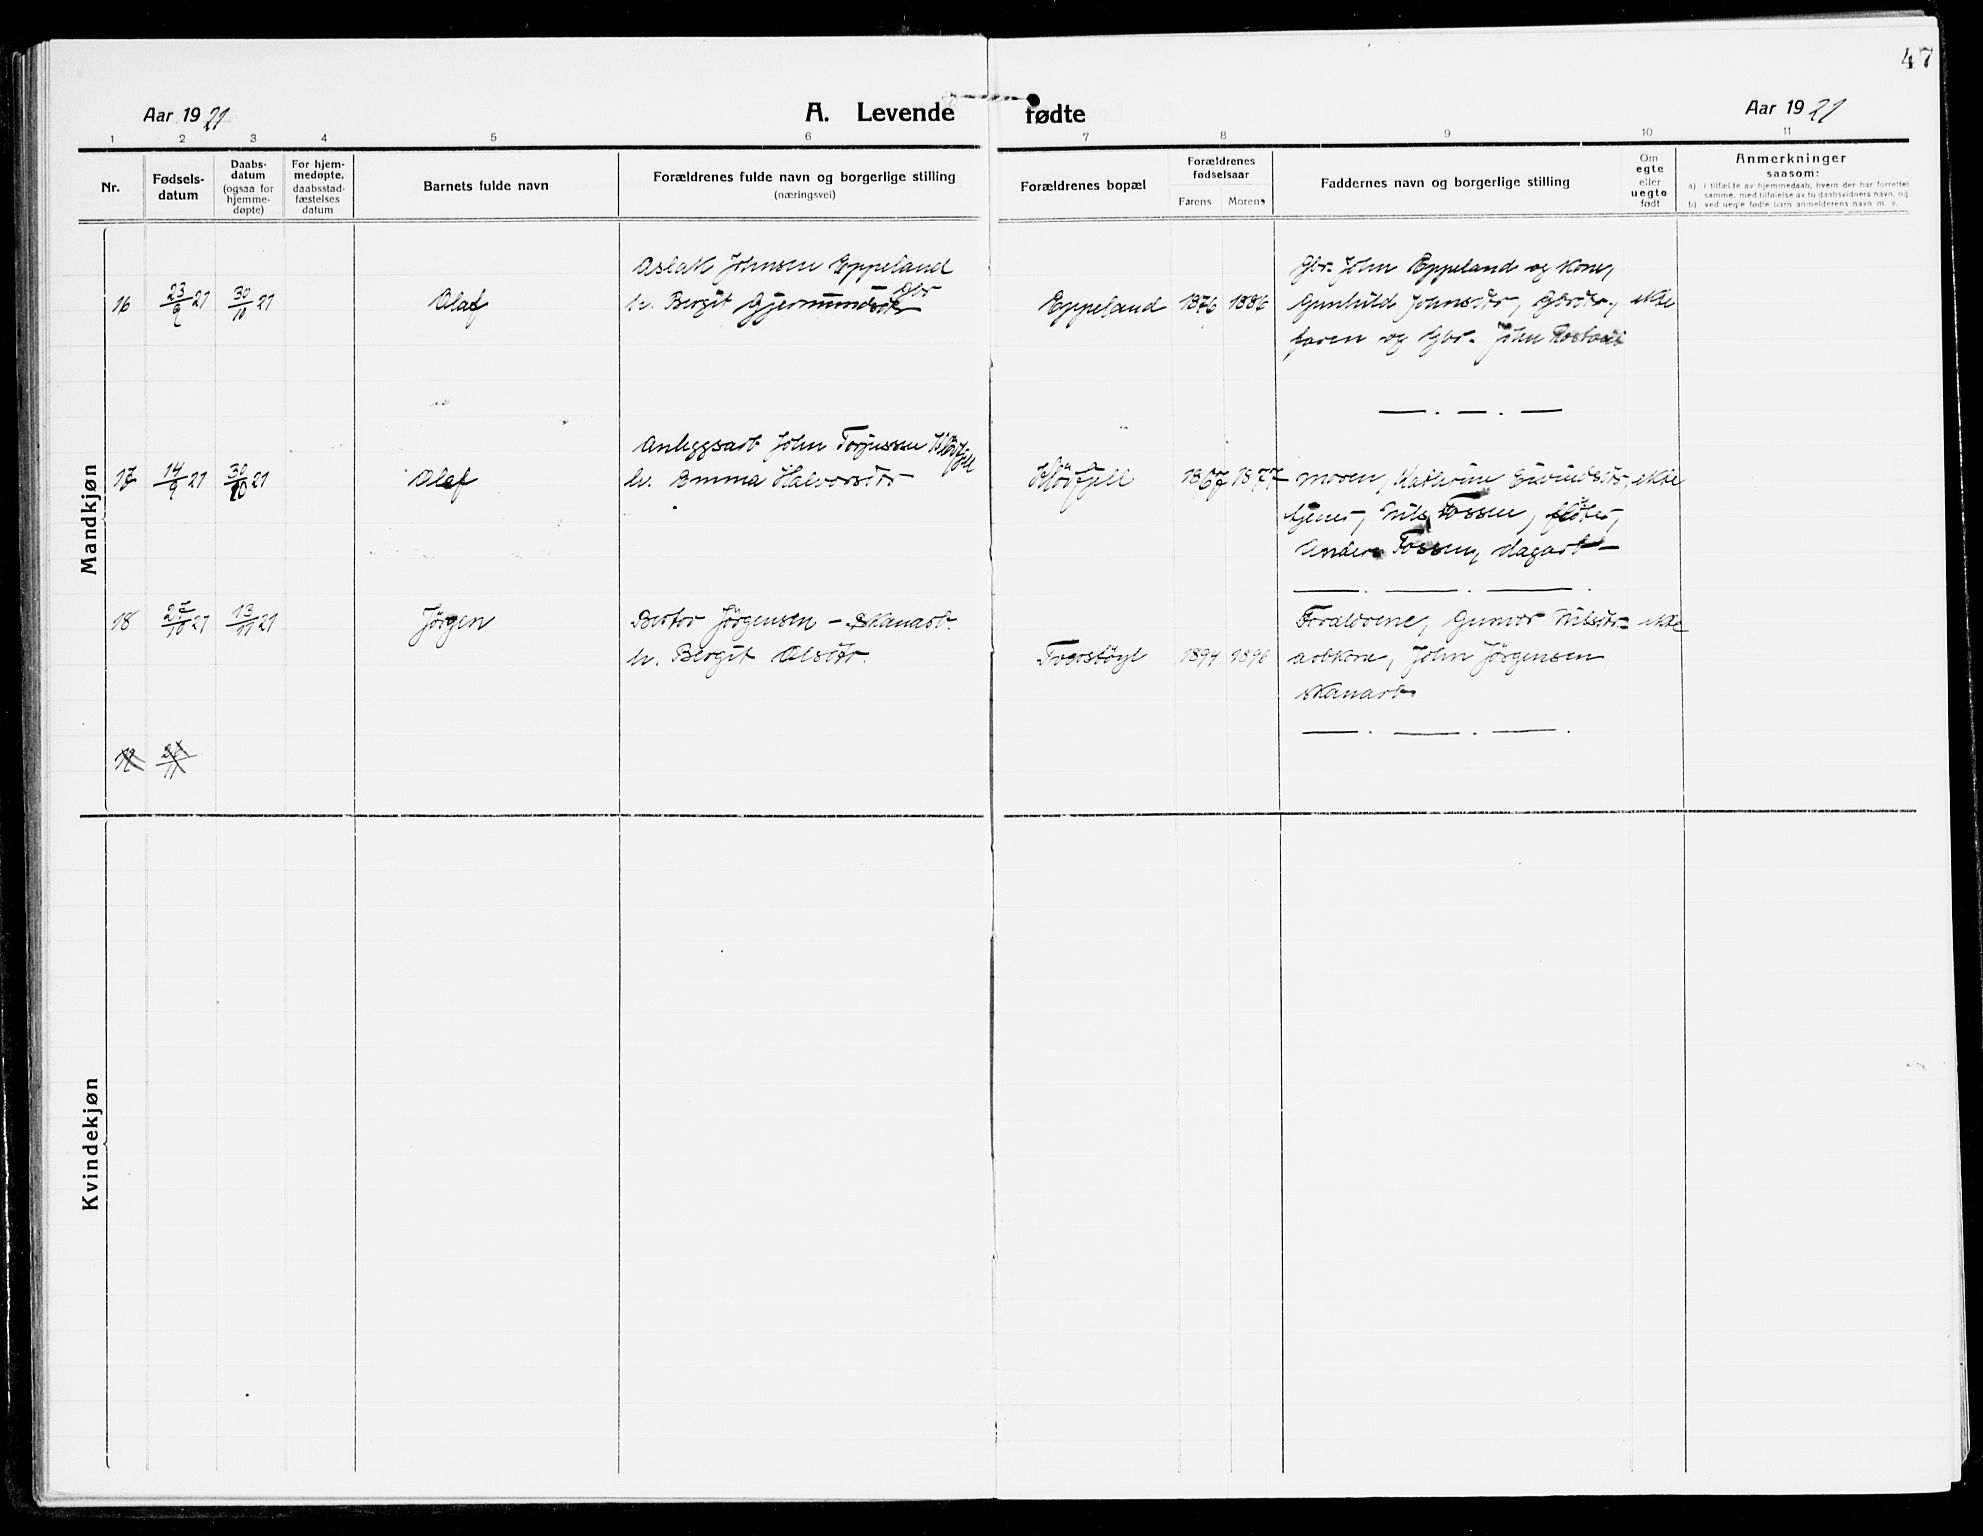 47
Aar 1921
A. Levende fødte
Aar 1921
1 2 3 4 5 6 7 8 9 10 11
Nr.
Fødsels-
datum
Daabs-
datum
(ogsaa for
hjemme-
døpte)
For hjem-
medøpte,
daabsstad-
fæstelses
datum
Barnets fulde navn
Forældrenes fulde navn og borgerlige stilling
(næringsvei)
Forældrenes bopæl
Forældrenes
fødselsaar
Farens Morens
Faddernes navn og borgerlige stilling
Om
egte
eller
uegte
født
Anmerkninger
saasom:
a) i tilfælde av hjemmedaab, hvem der har forrettet
samme, med tilføielse av to daabsvidners navn, og
b) ved uegte fødte barn anmelderens navn m. v.
Mandkjøn
16 23/9 21 30/10 21 Olaf
Aslak Johnsen Eppeland
Gbr
h. Bergit Gjermundsdtr
Eppeland 1876 1886
Gbr. John Eppeland og kone,
Gunhild Johnsdtr, Gbrdtr., ekte
faren og Gbr. John
17 14/9 21 30/10 21 Olaf
Anleggsarb. John Torjussen Kløvfjell
h. Emma Halvorsdtr
Kløvfjell 1867 1877
moren, Kathrine Eivindsdtr, ekte
tjener, Nils Fossen, fløter,
Anders Fossen, dagarb.
18 27/10 21 13/11 21 Jørgen
Bertor Jørgensen - skauarb.
h. Bergit Olsdtr.
Tverstøyl 1894 1896
Foreldrene, Gunvor Nilsdtr- ekte
arbkone, John Jørgensen
skauarb
Kvindekjøn